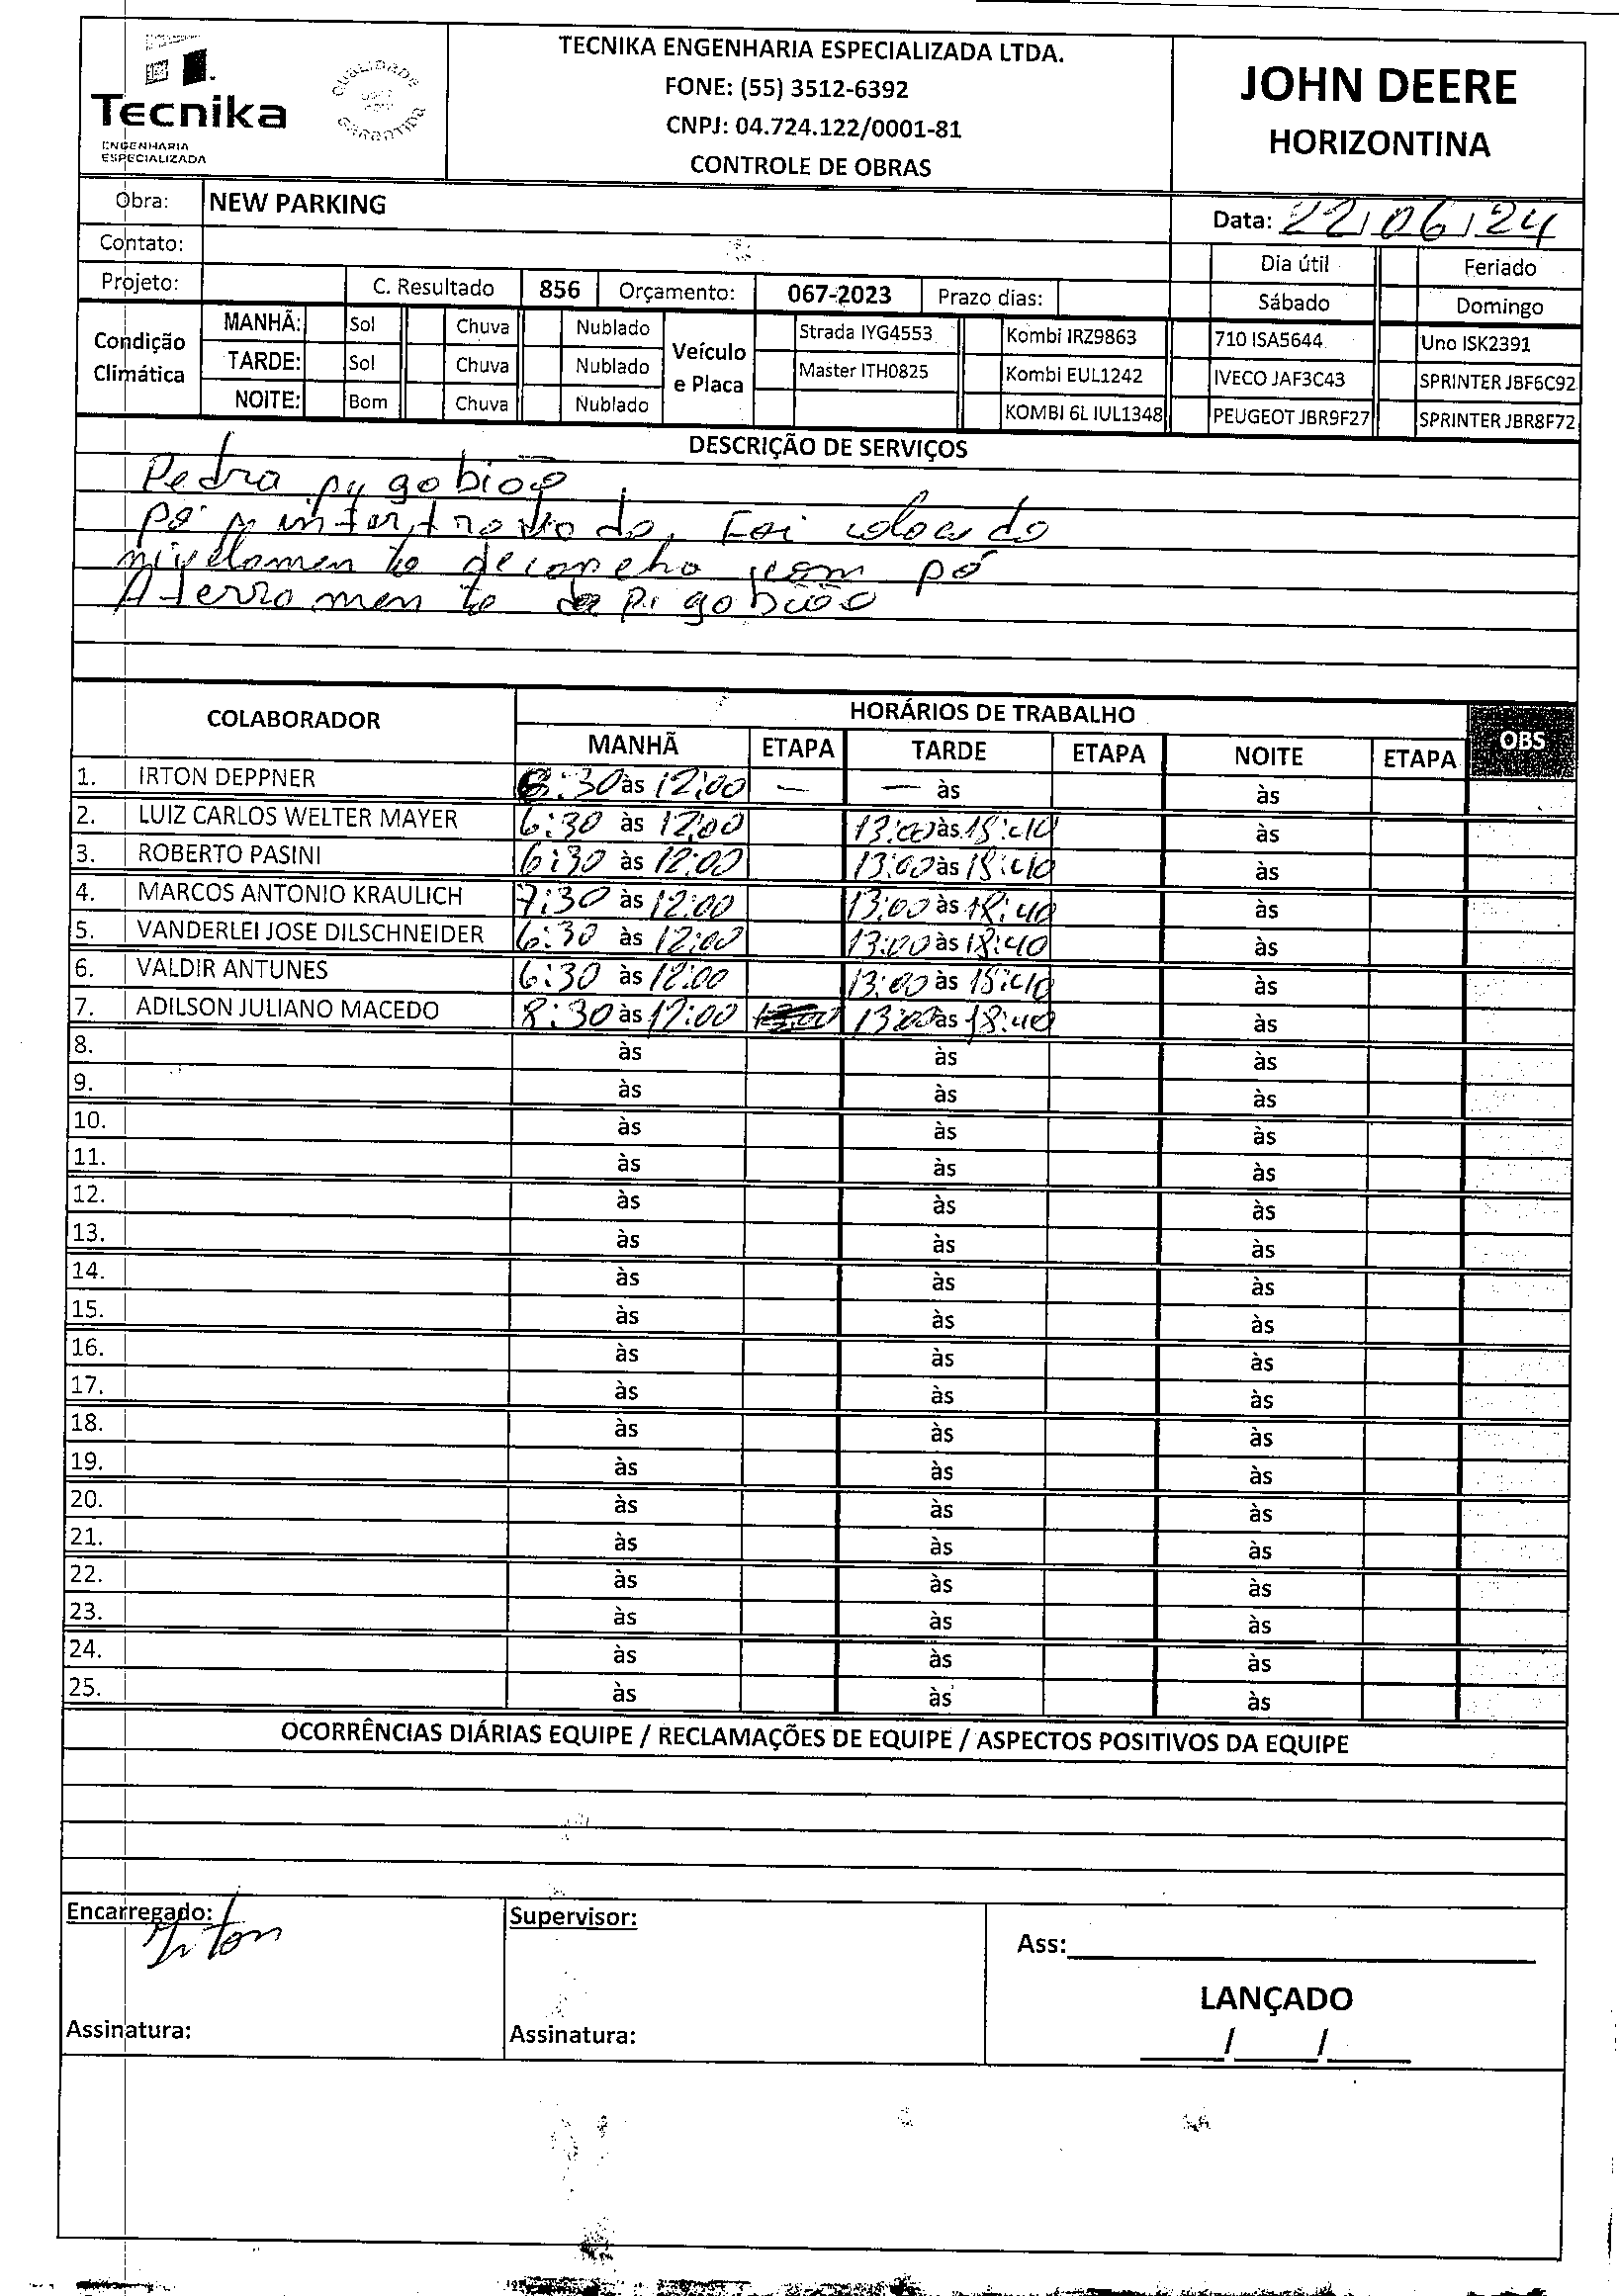 Tecnika
ENGENHARIA
ESPECIALIZADA
QUALIDADE
GARANTIDA
TECNIKA ENGENHARIA ESPECIALIZADA LTDA.
FONE: (55) 3512-6392
CNPJ: 04.724.122/0001-81
CONTROLE DE OBRAS
JOHN DEERE
HORIZONTINA
Obra: NEW PARKING
Data: 22/06/24
Contato:
Dia útil Feriado
Projeto: C. Resultado 856 Orçamento: 067-2023 Prazo dias: Sábado Domingo
Condição Climática
MANHÃ: Sol Chuva Nublado
TARDE: Sol Chuva Nublado
NOITE: Bom Chuva Nublado
Veículo e Placa
Strada IYG4553 Kombi IRZ9863 710 ISA5644 Uno ISK2391
Master ITH0825 Kombi EUL1242 IVECO JAF3C43 SPRINTER JBF6C92
KOMBI 6L IUL1348 PEUGEOT JBR9F27 SPRINTER JBR8F72
DESCRIÇÃO DE SERVIÇOS
Pedra p/ gobião
Pó p/ intertravado. Foi colocado
nivelamento com pó
Aterramento p/ gobião
COLABORADOR HORÁRIOS DE TRABALHO OBS
MANHÃ ETAPA TARDE ETAPA NOITE ETAPA
1. IRTON DEPPNER 8:30 às 12:00 — — às às
2. LUIZ CARLOS WELTER MAYER 6:30 às 12:00 13:00 às 15:40 às
3. ROBERTO PASINI 6:30 às 12:00 13:00 às 15:40 às
4. MARCOS ANTONIO KRAULICH 7:30 às 12:00 13:00 às 18:40 às
5. VANDERLEI JOSE DILSCHNEIDER 6:30 às 12:00 13:00 às 18:40 às
6. VALDIR ANTUNES 6:30 às 12:00 13:00 às 15:40 às
7. ADILSON JULIANO MACEDO 8:30 às 12:00 13:00 às 18:40 às
8. às às às
9. às às às
10. às às às
11. às às às
12. às às às
13. às às às
14. às às às
15. às às às
16. às às às
17. às às às
18. às às às
19. às às às
20. às às às
21. às às às
22. às às às
23. às às às
24. às às às
25. às às às
OCORRÊNCIAS DIÁRIAS EQUIPE / RECLAMAÇÕES DE EQUIPE / ASPECTOS POSITIVOS DA EQUIPE
Encarregado: Irton
Supervisor:
Ass:
LANÇADO
Assinatura:
Assinatura:
/ /